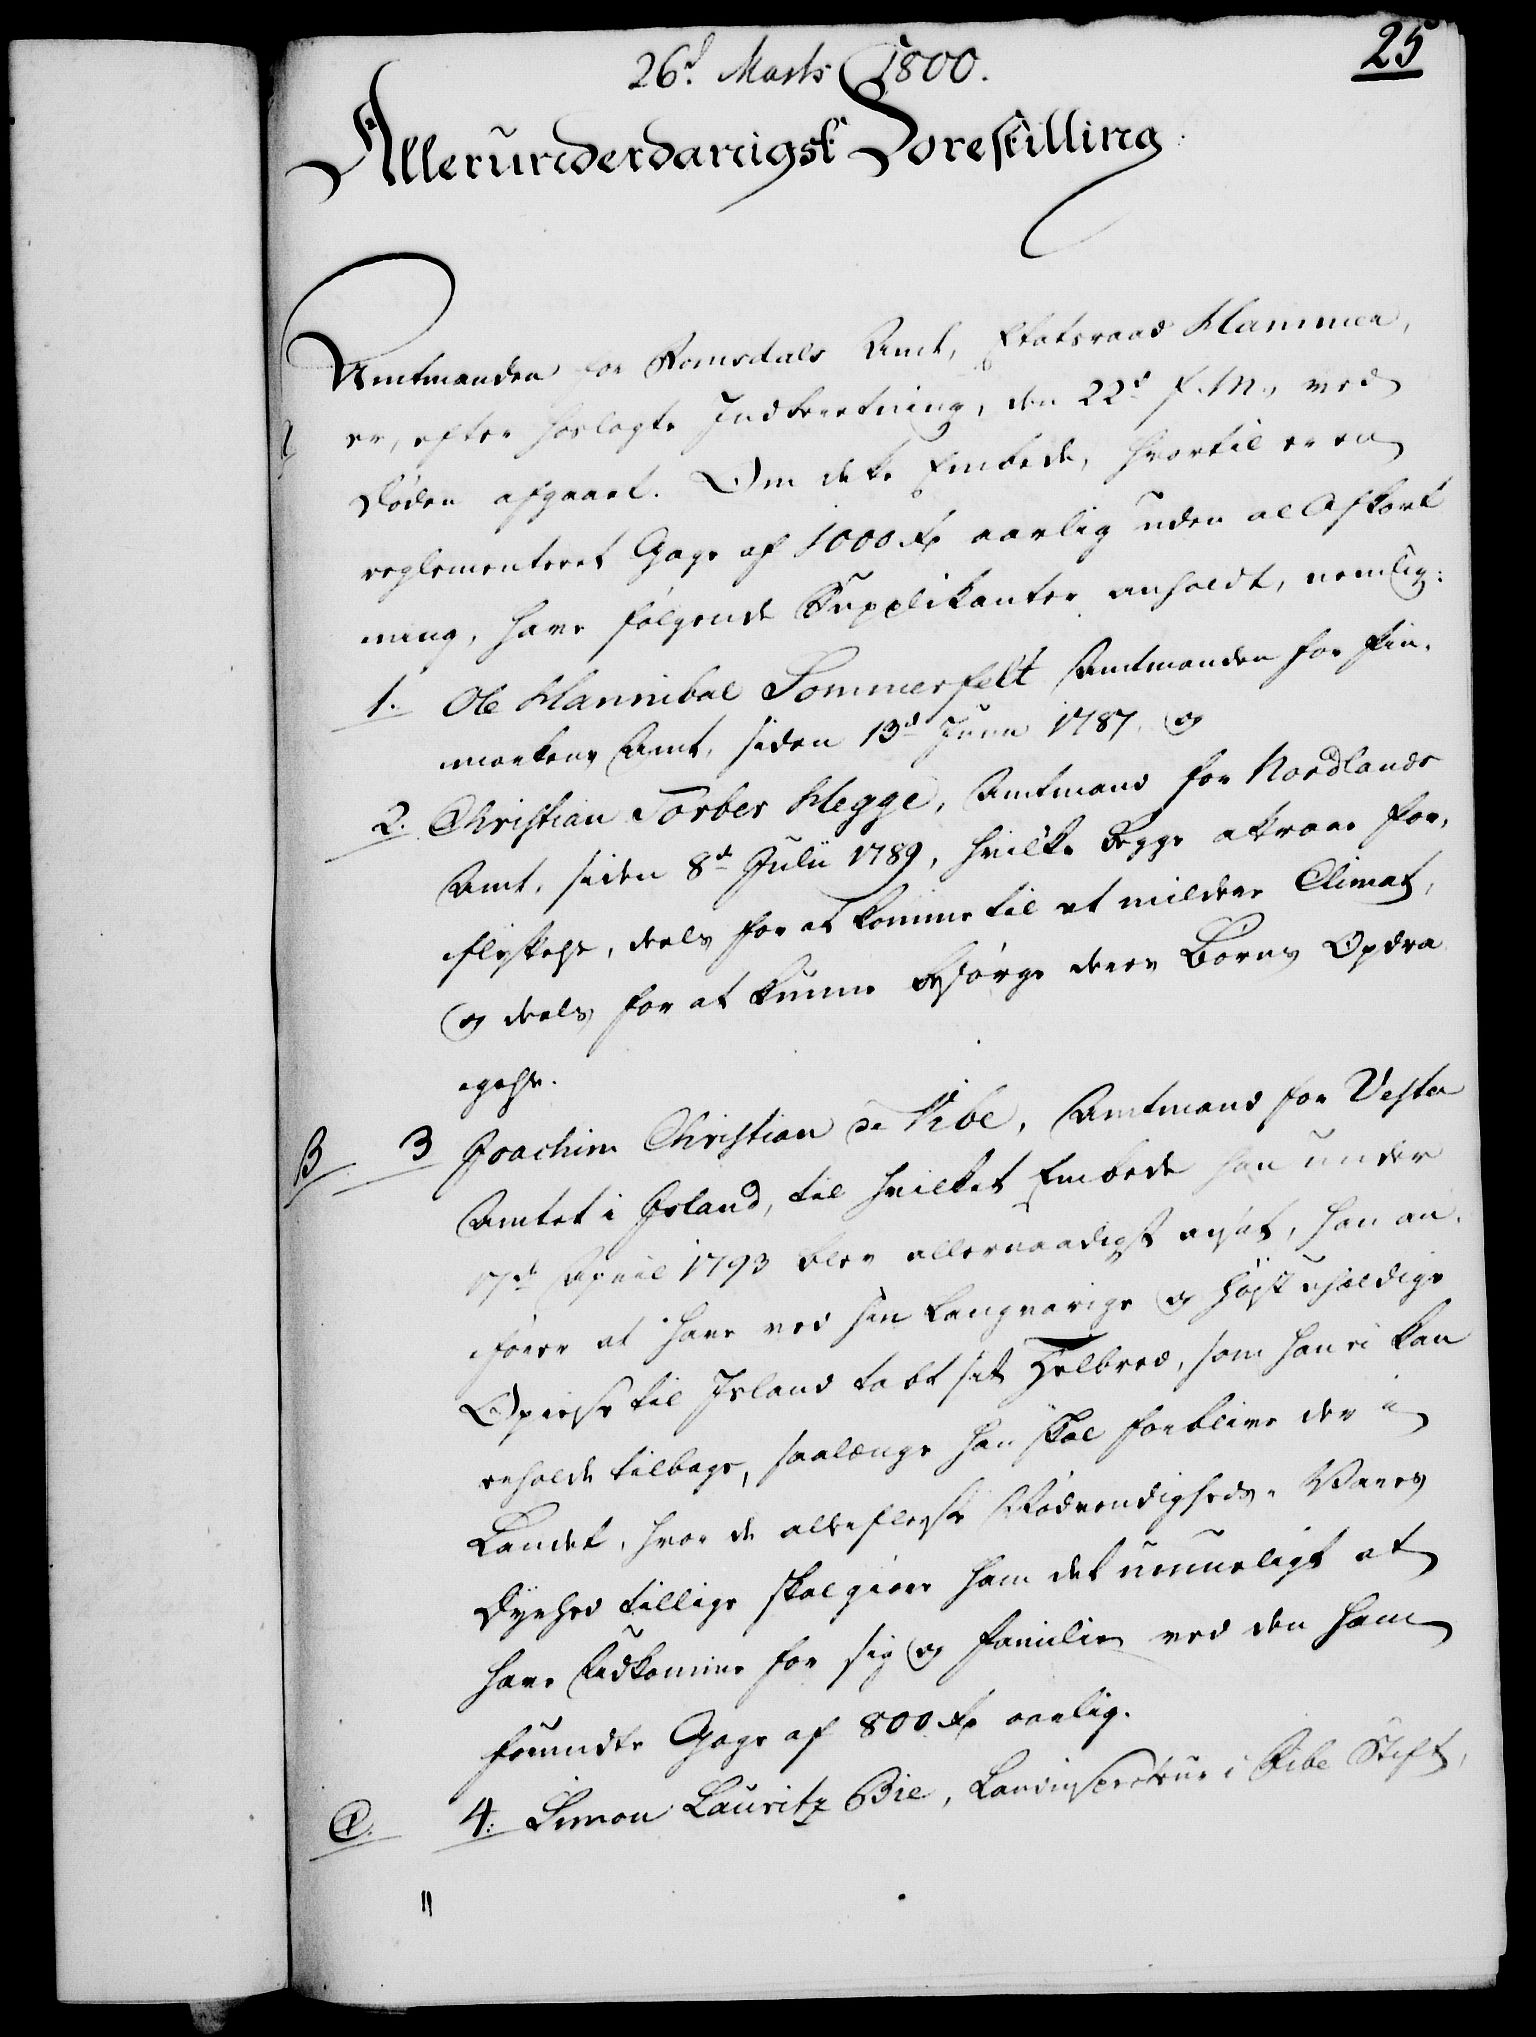 25
26d Marts 1800.
Allerunderdanigst Forestilling.
Amtmanden for Romsdals Amt, Etatsraad Hammer,
er, efter hoslagte Indberetning, den 22d f. M., ved
Døden afgaaet. Om dette Embede, hvortil er en
reglementeret Gage af 1000 Rd aarlig uden al Afkort
ning, have følgende Supplikanter anholdt, nemlig:
1. Ole Hannibal Sommerfelt Amtmanden for Fin-
markens Amt, siden 13d Junii 1787, og
2. Christian Torber Hegge, Amtmand for Nordlands
Amt, siden 8d Julii 1789, hvilke begge attraae For-
flyttelse, deels for at komme til et mildere Climat,
og deels for at kunne besørge deres Børns Opdra
gelse.
B 3 Joachim Christian de Vibe, Amtmand for Vester
Amtet i Island, til hvilket Embede han under
17d April 1793 blev allernaadigst ansat, han an-
fører at have ved sin langvarige og høist uheldige
Opreise til Island tabt sit Helbred, som han ei kan
erholde tilbage, saalænge han skal forblive der i
Landet, hvor de allerfleste Nødvendigheds-Varers
Dyrhed tillige skal giøre ham det umueligt at
have Udkomme for sig og Familie ved den ham
forundte Gage af 800 Rd aarlig.
C. 4. Simon Lauritz Bie, Landinspecteur i Ribe Stift,